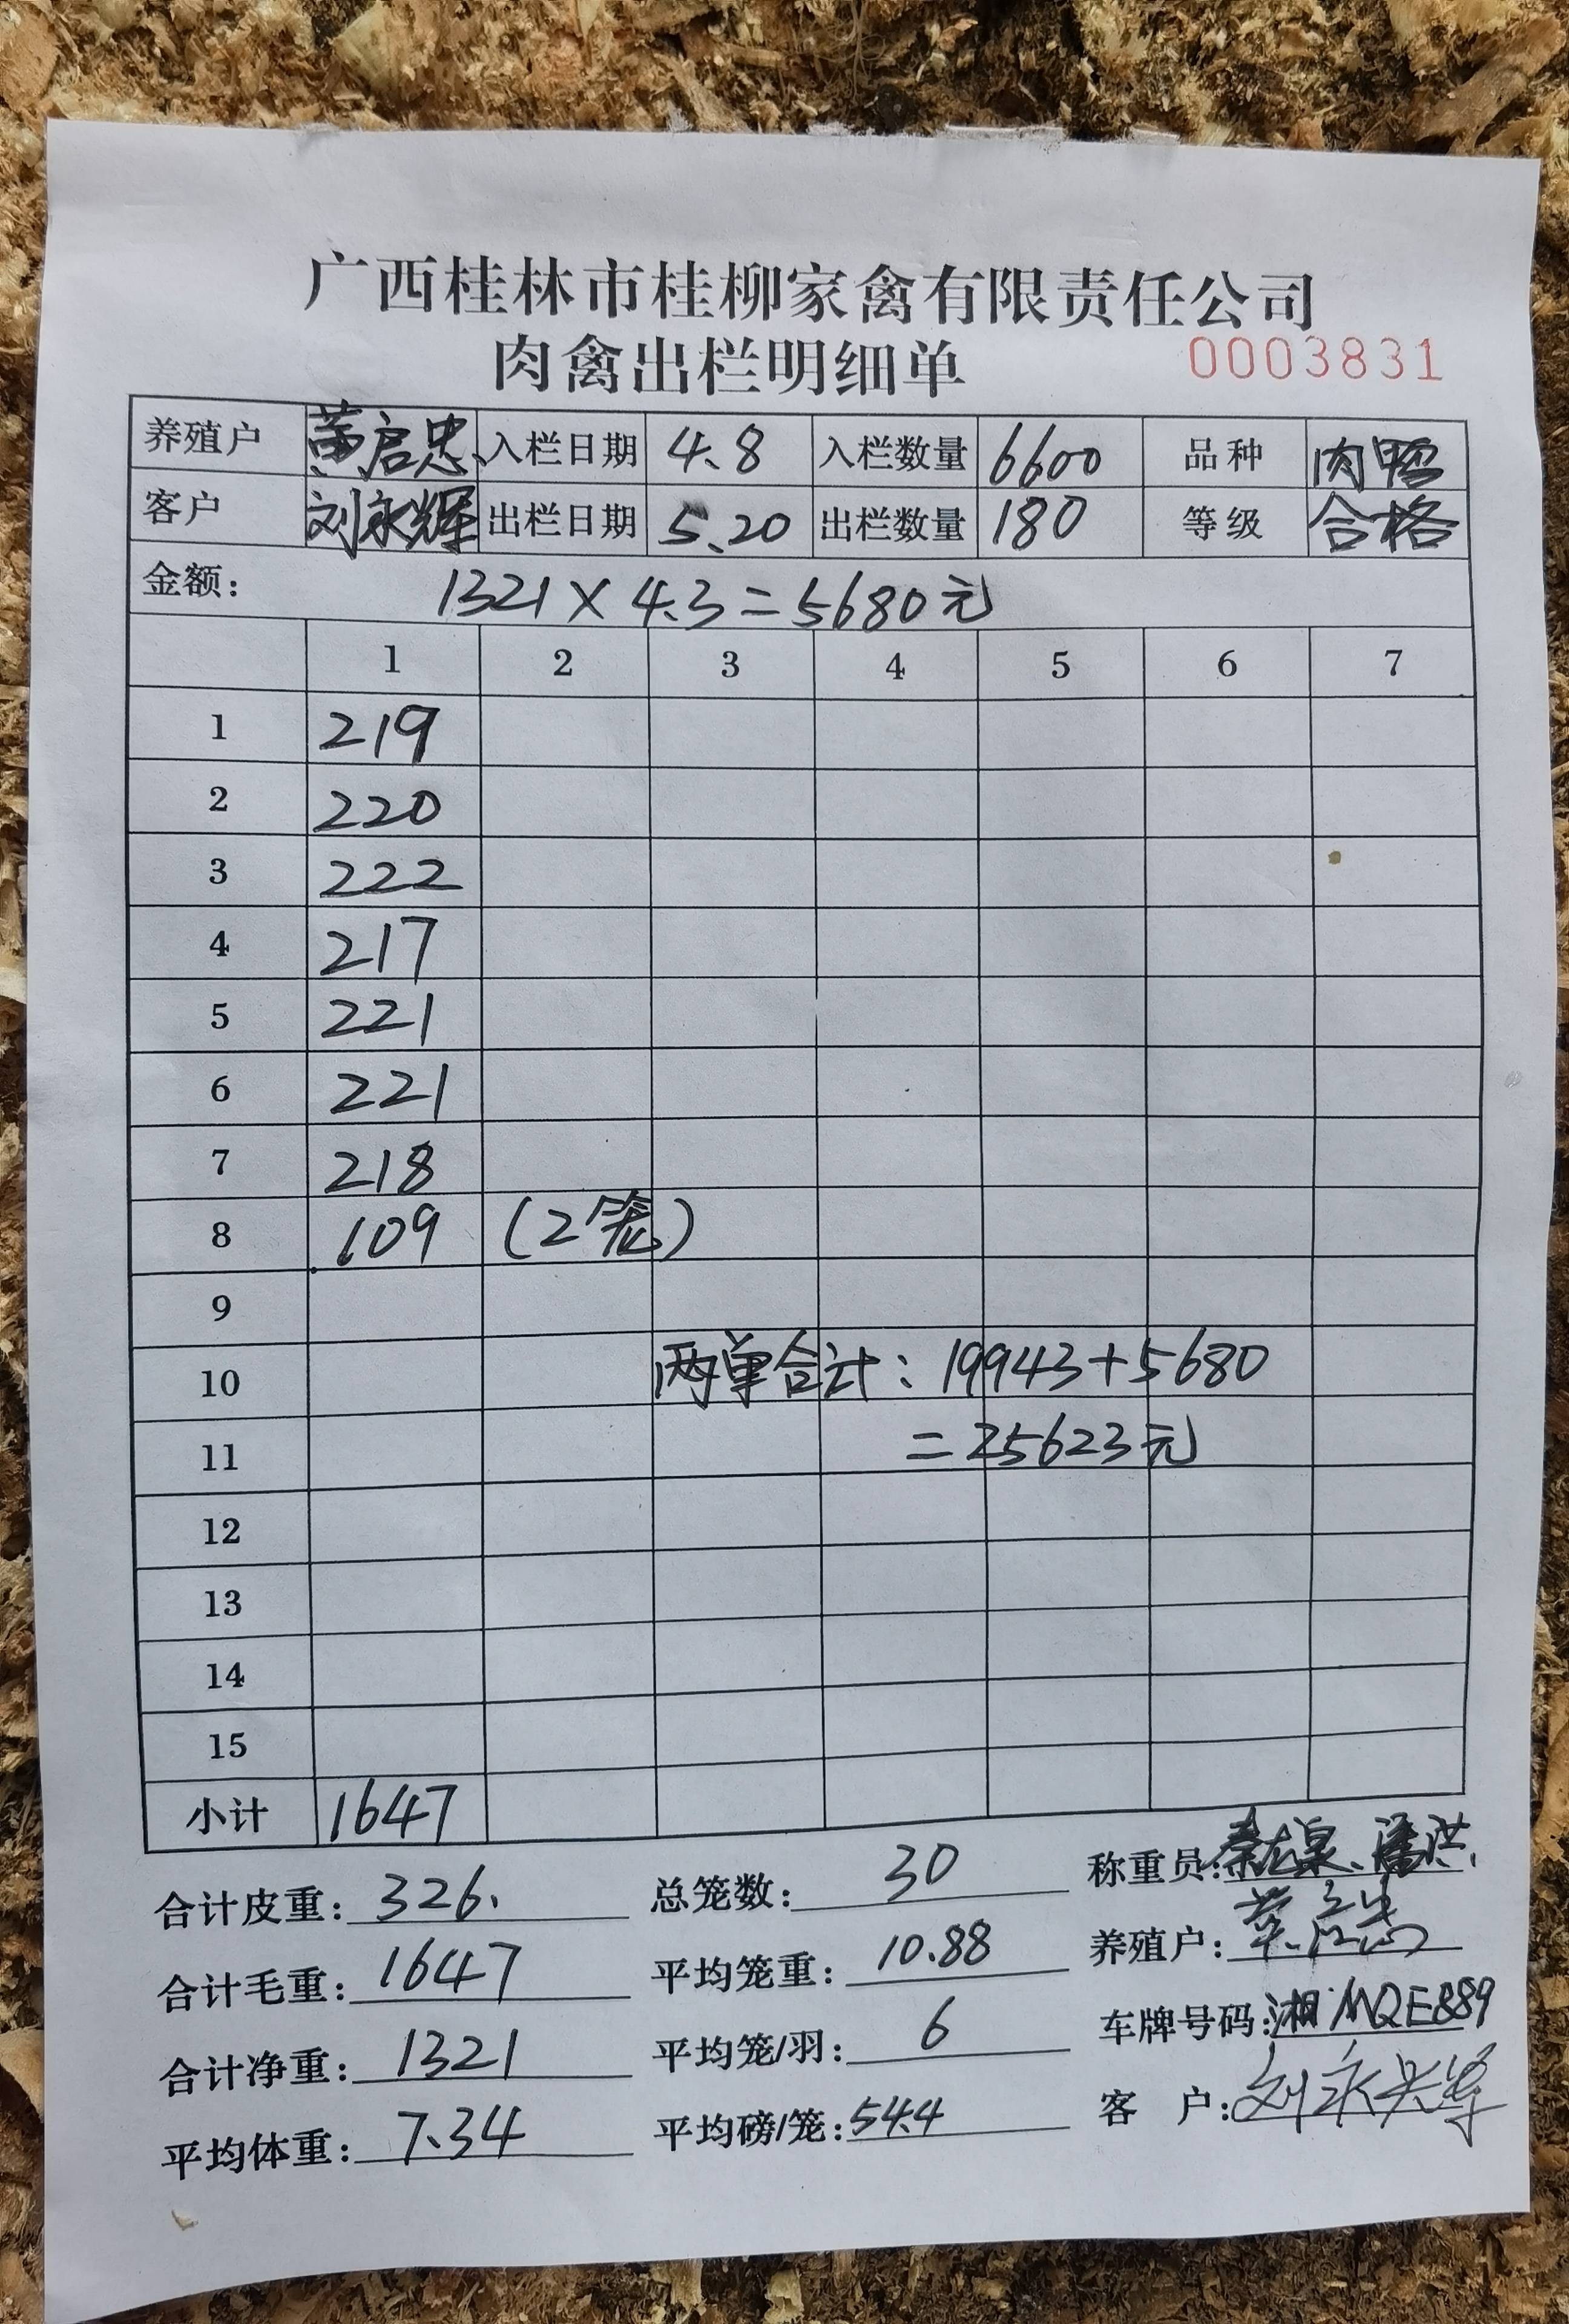 广西桂林市桂柳家禽有限责任公司
肉禽出栏明细单 0003831
养殖户 黄启忠 入栏日期 4.8 入栏数量 6600 品种 肉鸭
客户 刘永辉 出栏日期 5.20 出栏数量 180 等级 合格
金额: 1321×4.3=5680元
1 2 3 4 5 6 7
1 219
2 220
3 222
4 217
5 221
6 221
7 218
8 109 (2笼)
9
10 两单合计:19943+5680
11 =25623元
12
13
14
15
小计 1647
合计皮重: 326. 总笼数: 30 称重员:
合计毛重: 1647 平均笼重: 10.88 养殖户:
合计净重: 1321 平均笼/羽: 6 车牌号码: 湘MQE889
平均体重: 7.34 平均磅/笼: 54.4 客 户: 刘永辉